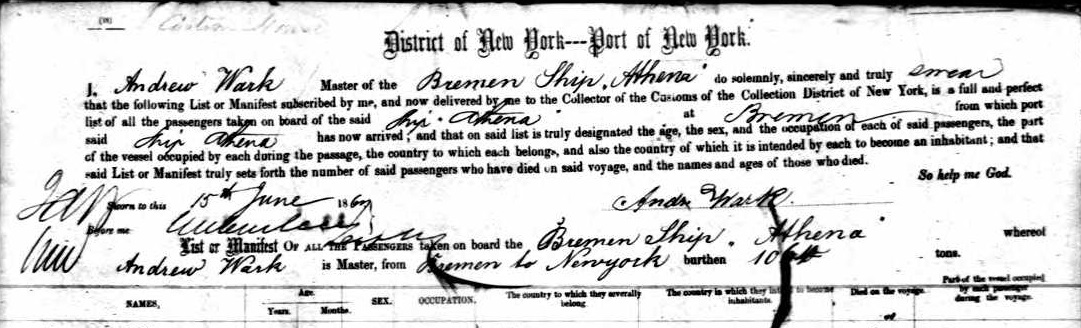 (18)
Custom House
District of New York---Port of New York.
I, Andrew Wark Master of the Bremen Ship, Athena do solemnly, sincerely and truly swear
that the following List or Manifest subscribed by me, and now delivered by me to the Collector of the Customs of the Collection District of New York, is a full and perfect
list of all the passengers taken on board of the said Ship. Athena at Bremen from which port
said Ship Athena has now arrived; and that on said list is truly designated the age, the sex, and the occupation of each of said passengers, the part
of the vessel occupied by each during the passage, the country to which each belongs, and also the country of which it is intended by each to become an inhabitant; and that
said List or Manifest truly sets forth the number of said passengers who have died on said voyage, and the names and ages of those who died.
So help me God.
Sworn to this 15th June 1867 Andr Wark.
Before me
List or Manifest OF ALL THE PASSENGERS taken on board the Bremen Ship. Athena whereof
Andrew Wark is Master, from Bremen to Newyork burthen tons.
NAMES, Age. Years. Months. SEX. OCCUPATION. The country to which they severally belong The country in which they to become inhabitants. Died on the voyage. Part of the vessel occupied by each passenger during the voyage.